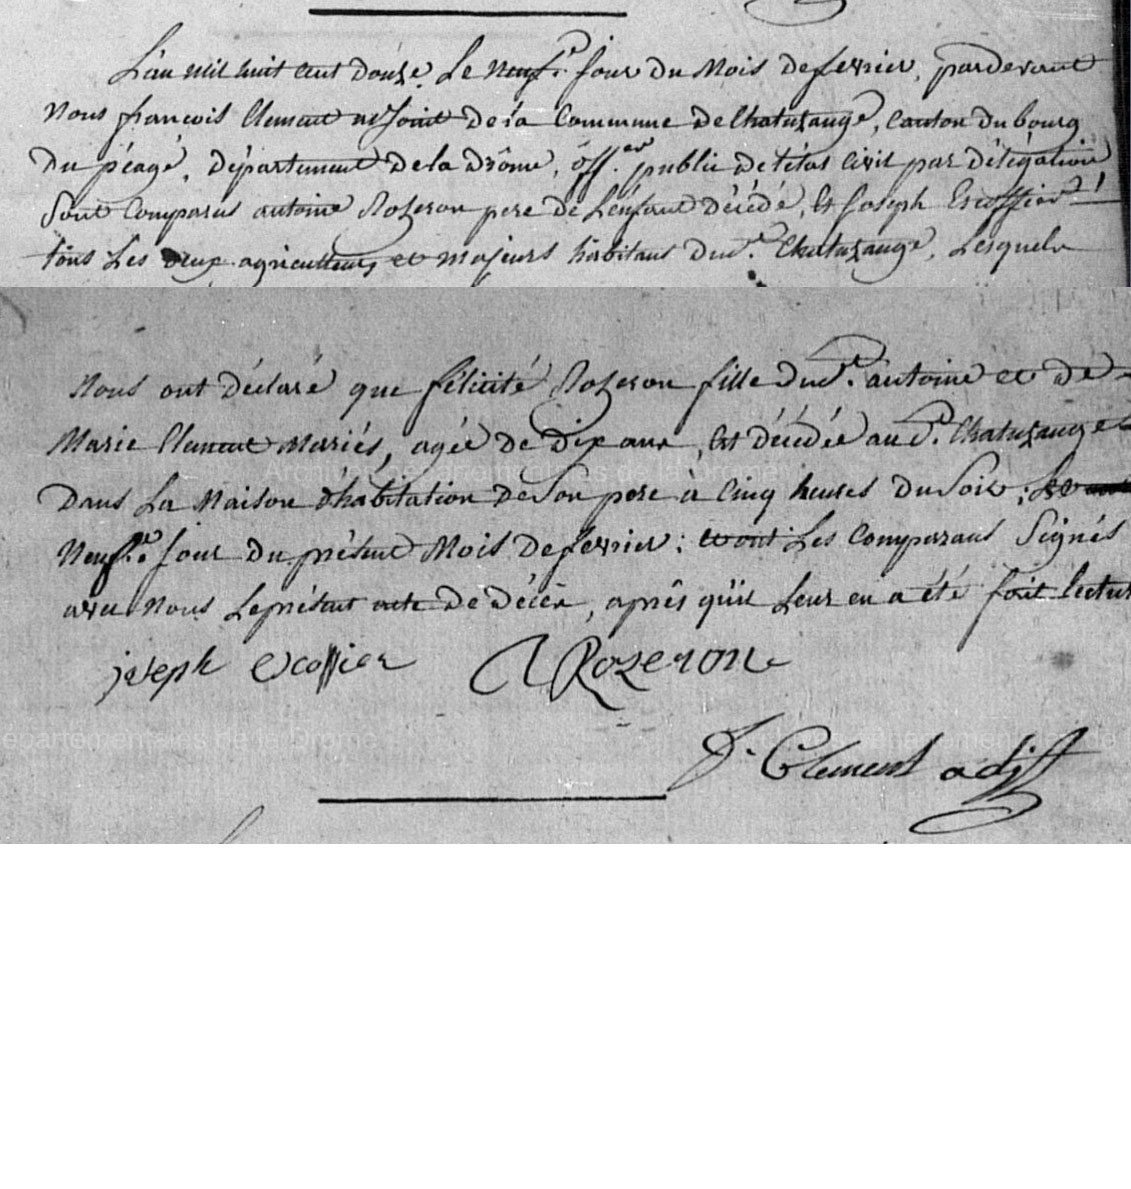 L'an mil huit cent douze, Le neuf.e jour Du Mois De fevrier, pardevant
Nous françois Clement adjoint De la Commune De Chatuzange, Canton Du bourg
Du péage, Département De la Drôme, off.er public De l'état Civil par Délégation
Sont Comparus antoine Rozeron pere De L'enfant Décédé, Et Joseph Escoffier
tous Les Deux agriculteurs et majeurs habitans Dud.t Chatuzange, Lesquels
Nous ont Déclaré que félicité Rozeron fille Dud.t antoine et De
Marie Clement Mariés, agée De Dix ans, Est Décédée aud.t Chatuzange
Dans La Maison d'habitation De Son pere à Cinq heures Du Soir; Le
Neuf.e Jour Du présent Mois De fevrier: et ont Les Comparans Signés
avec Nous Le présent acte De Décès, après qu'il Leur en a été fait lecture
joseph Escoffier A Rozeron
f. Clement adjt
Archives départementales de la Drôme